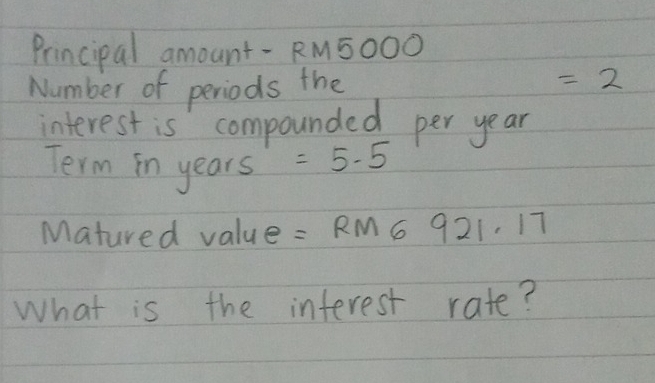 Principal amount - RM5000
Number of periods the = 2
interest is compounded per year
Term in years = 5.5
Matured value = RM 6 921.17
What is the interest rate?